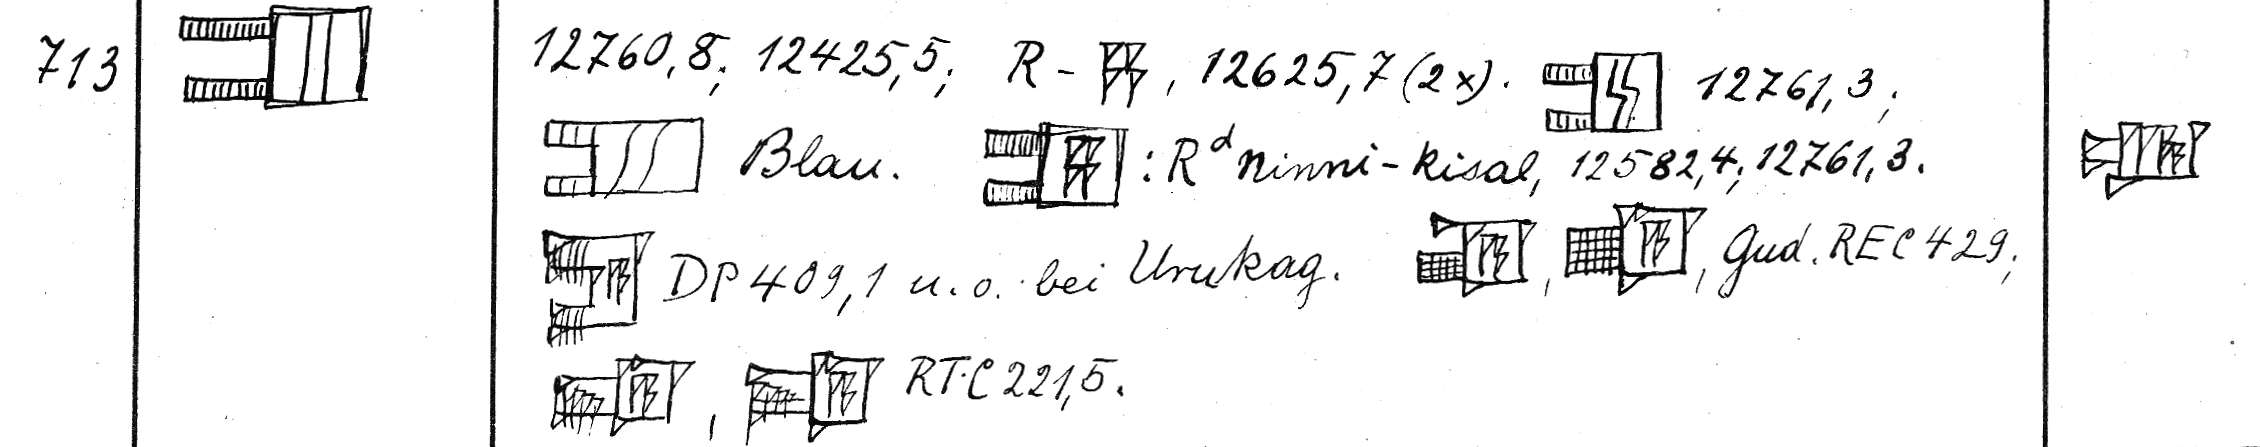 713 12760,8; 12425,5; R - , 12625,7 (2x). 12761,3;
Blau. : R d ninni-kisal, 12582,4; 12761,3.
DP 409,1 u. o. bei Urukag. , , Gud. REC 429;
, RTC 221,5.